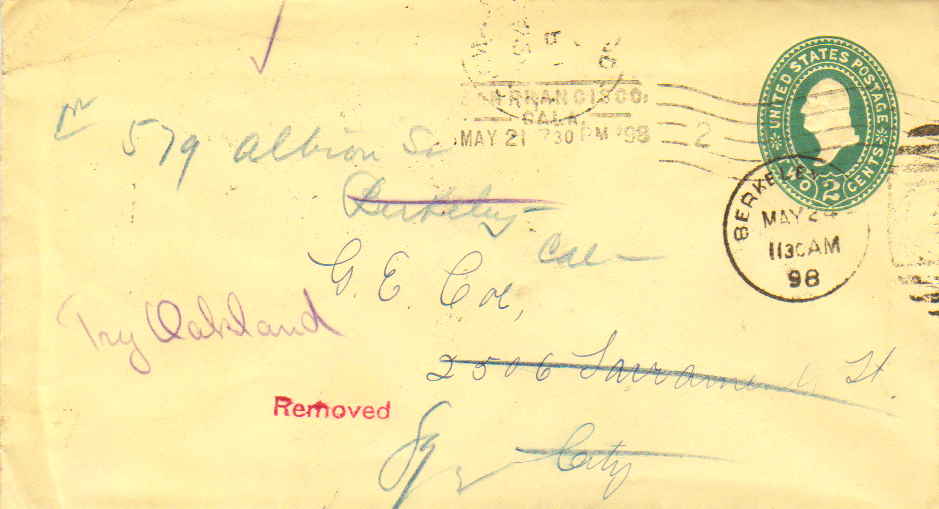 SAN FRANCISCO,
CALA.
MAY 21 730 PM '98
2
UNITED STATES POSTAGE
TWO 2 CENTS
BERKELEY
MAY 24
1130AM
98
579 Albion St
Berkeley
Cal
G. E. Coe,
Try Oakland
2506 Sacramento St
Removed
City